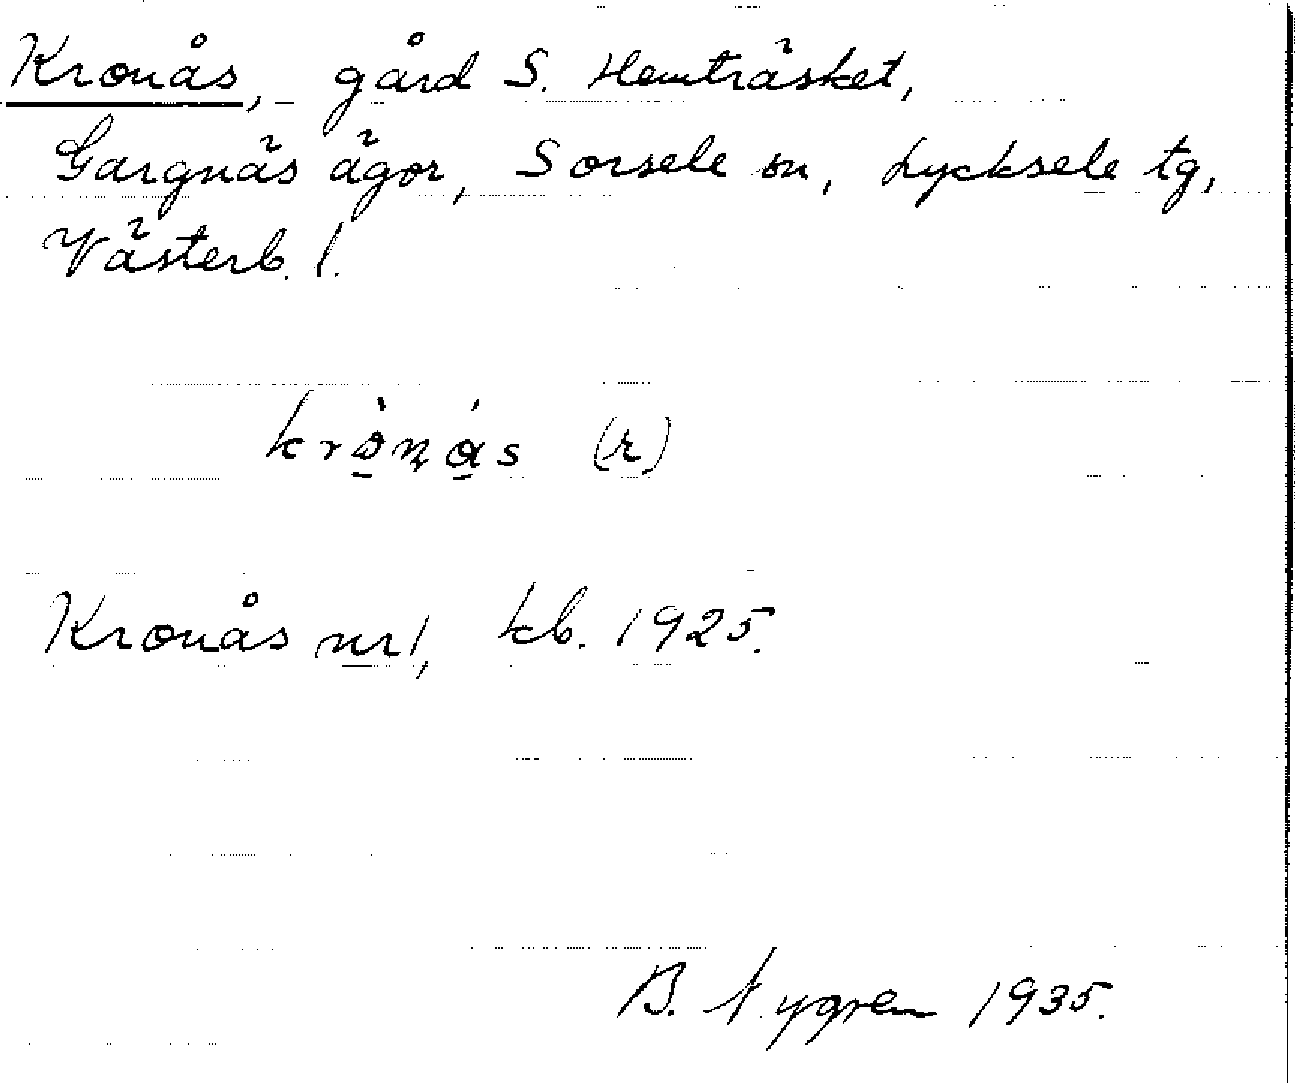 Kronås, gård S. Hemträsket,
Gargnäs ägor, Sorsele sn, Lycksele tg,
Västerb. l.
(r)
Kronås nr 1, kb. 1925.
B. Nygren 1935.